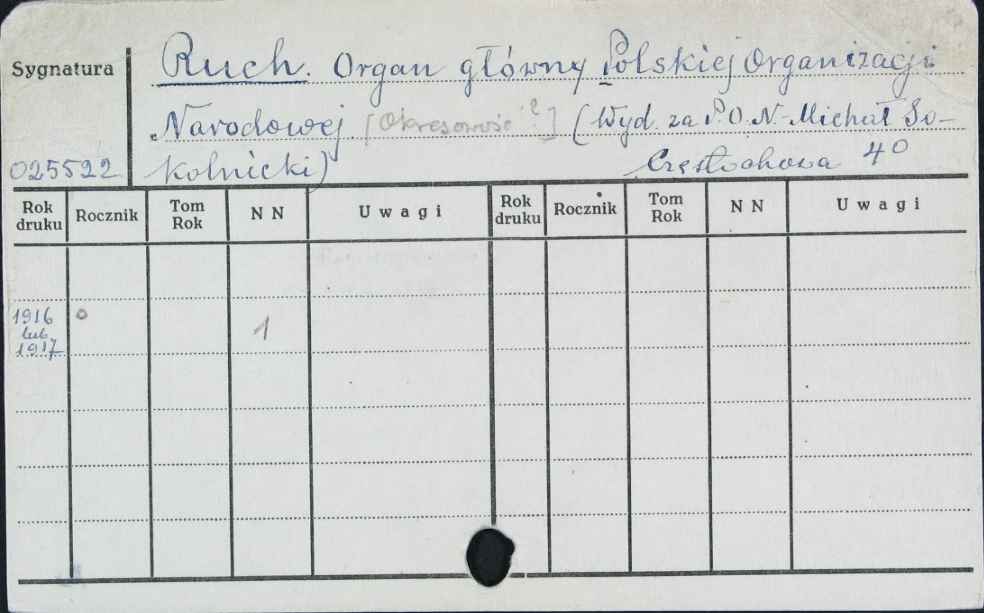 Sygnatura
Ruch. Organ główny Polskiej Organizacji
Narodowej [Okresowość?] (Wyd. za P.O.N. Michał So-
025522 kolnicki) Częstochowa 4°
Rok druku Rocznik Tom Rok N N Uwagi Rok druku Rocznik Tom Rok N N Uwagi
1916 lub 1917 0 1